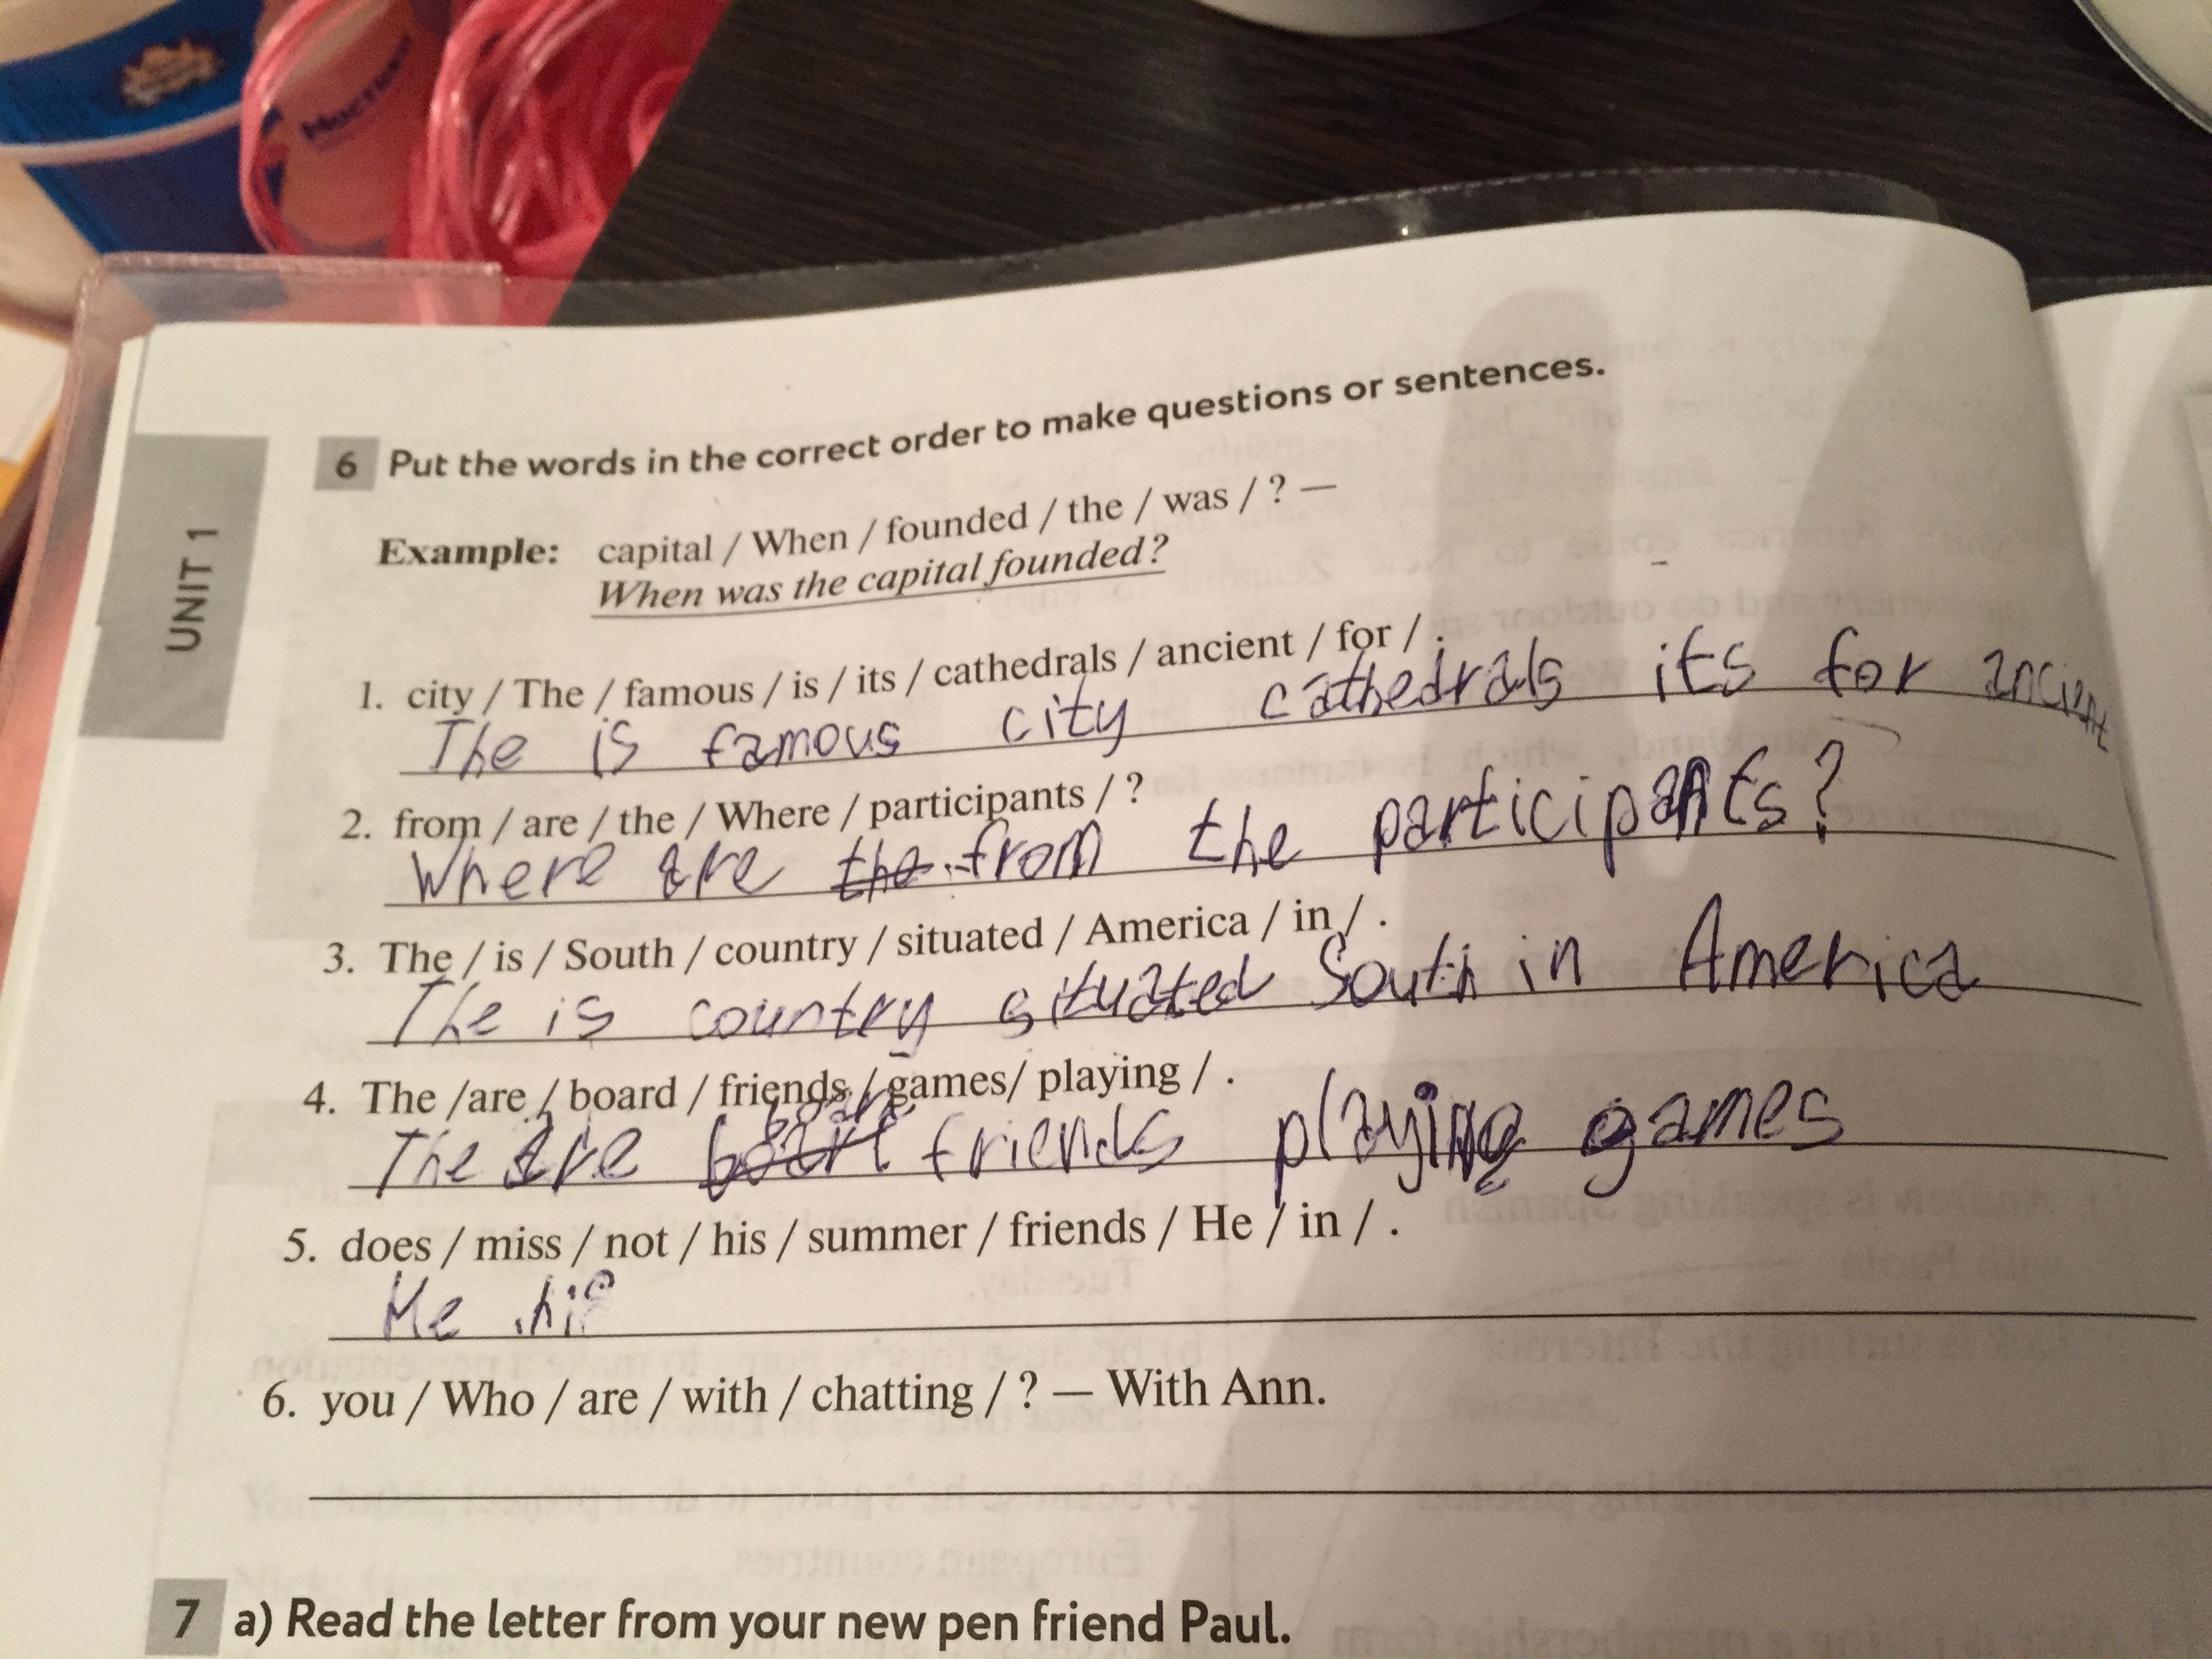 UNIT 1
6 Put the words in the correct order to make questions or sentences.
Example: capital / When / founded / the / was / ? —
When was the capital founded?
1. city / The / famous / is / its / cathedrals / ancient / for / .
The is famous city cathedrals its for ancient
2. from / are / the / Where / participants / ?
Where are the from the participants?
3. The / is / South / country / situated / America / in / .
The is country situated South in America
4. The /are / board / friends / games/ playing / .
The are friends playing games
5. does / miss / not / his / summer / friends / He / in / .
He his
6. you / Who / are / with / chatting / ? — With Ann.
7 a) Read the letter from your new pen friend Paul.